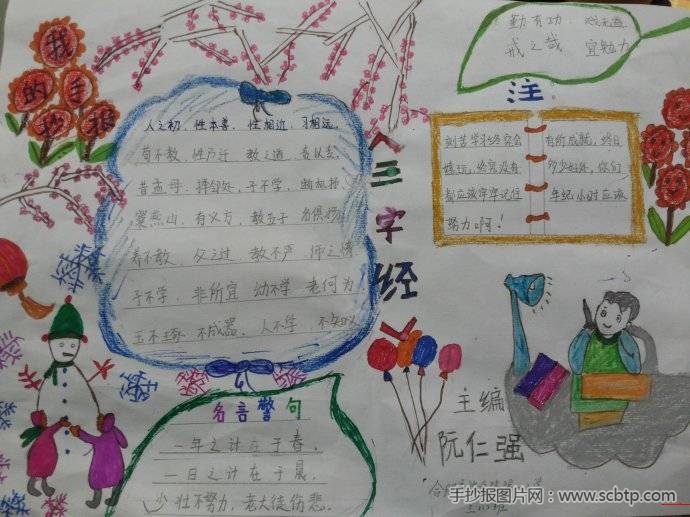 我的手抄报
《三字经》
人之初，性本善，性相近，习相远，
苟不教，性乃迁，教之道，贵以专，
昔孟母，择邻处，子不学，断机杼，
窦燕山，有义方，教五子，名俱扬，
养不教，父之过，教不严，师之惰，
子不学，非所宜，幼不学，老何为，
玉不琢，不成器，人不学，不知义
名言警句
一年之计在于春，
一日之计在于晨，
少壮不努力，老大徒伤悲。
勤有功，戏无益
戒之哉，宜勉力
注
刻苦学习终究会有所成就，终日
嬉玩，终究没有
都应该牢牢记住年纪小时应该
努力啊！
主编
阮仁强
手抄报图片网 www.scbtp.com